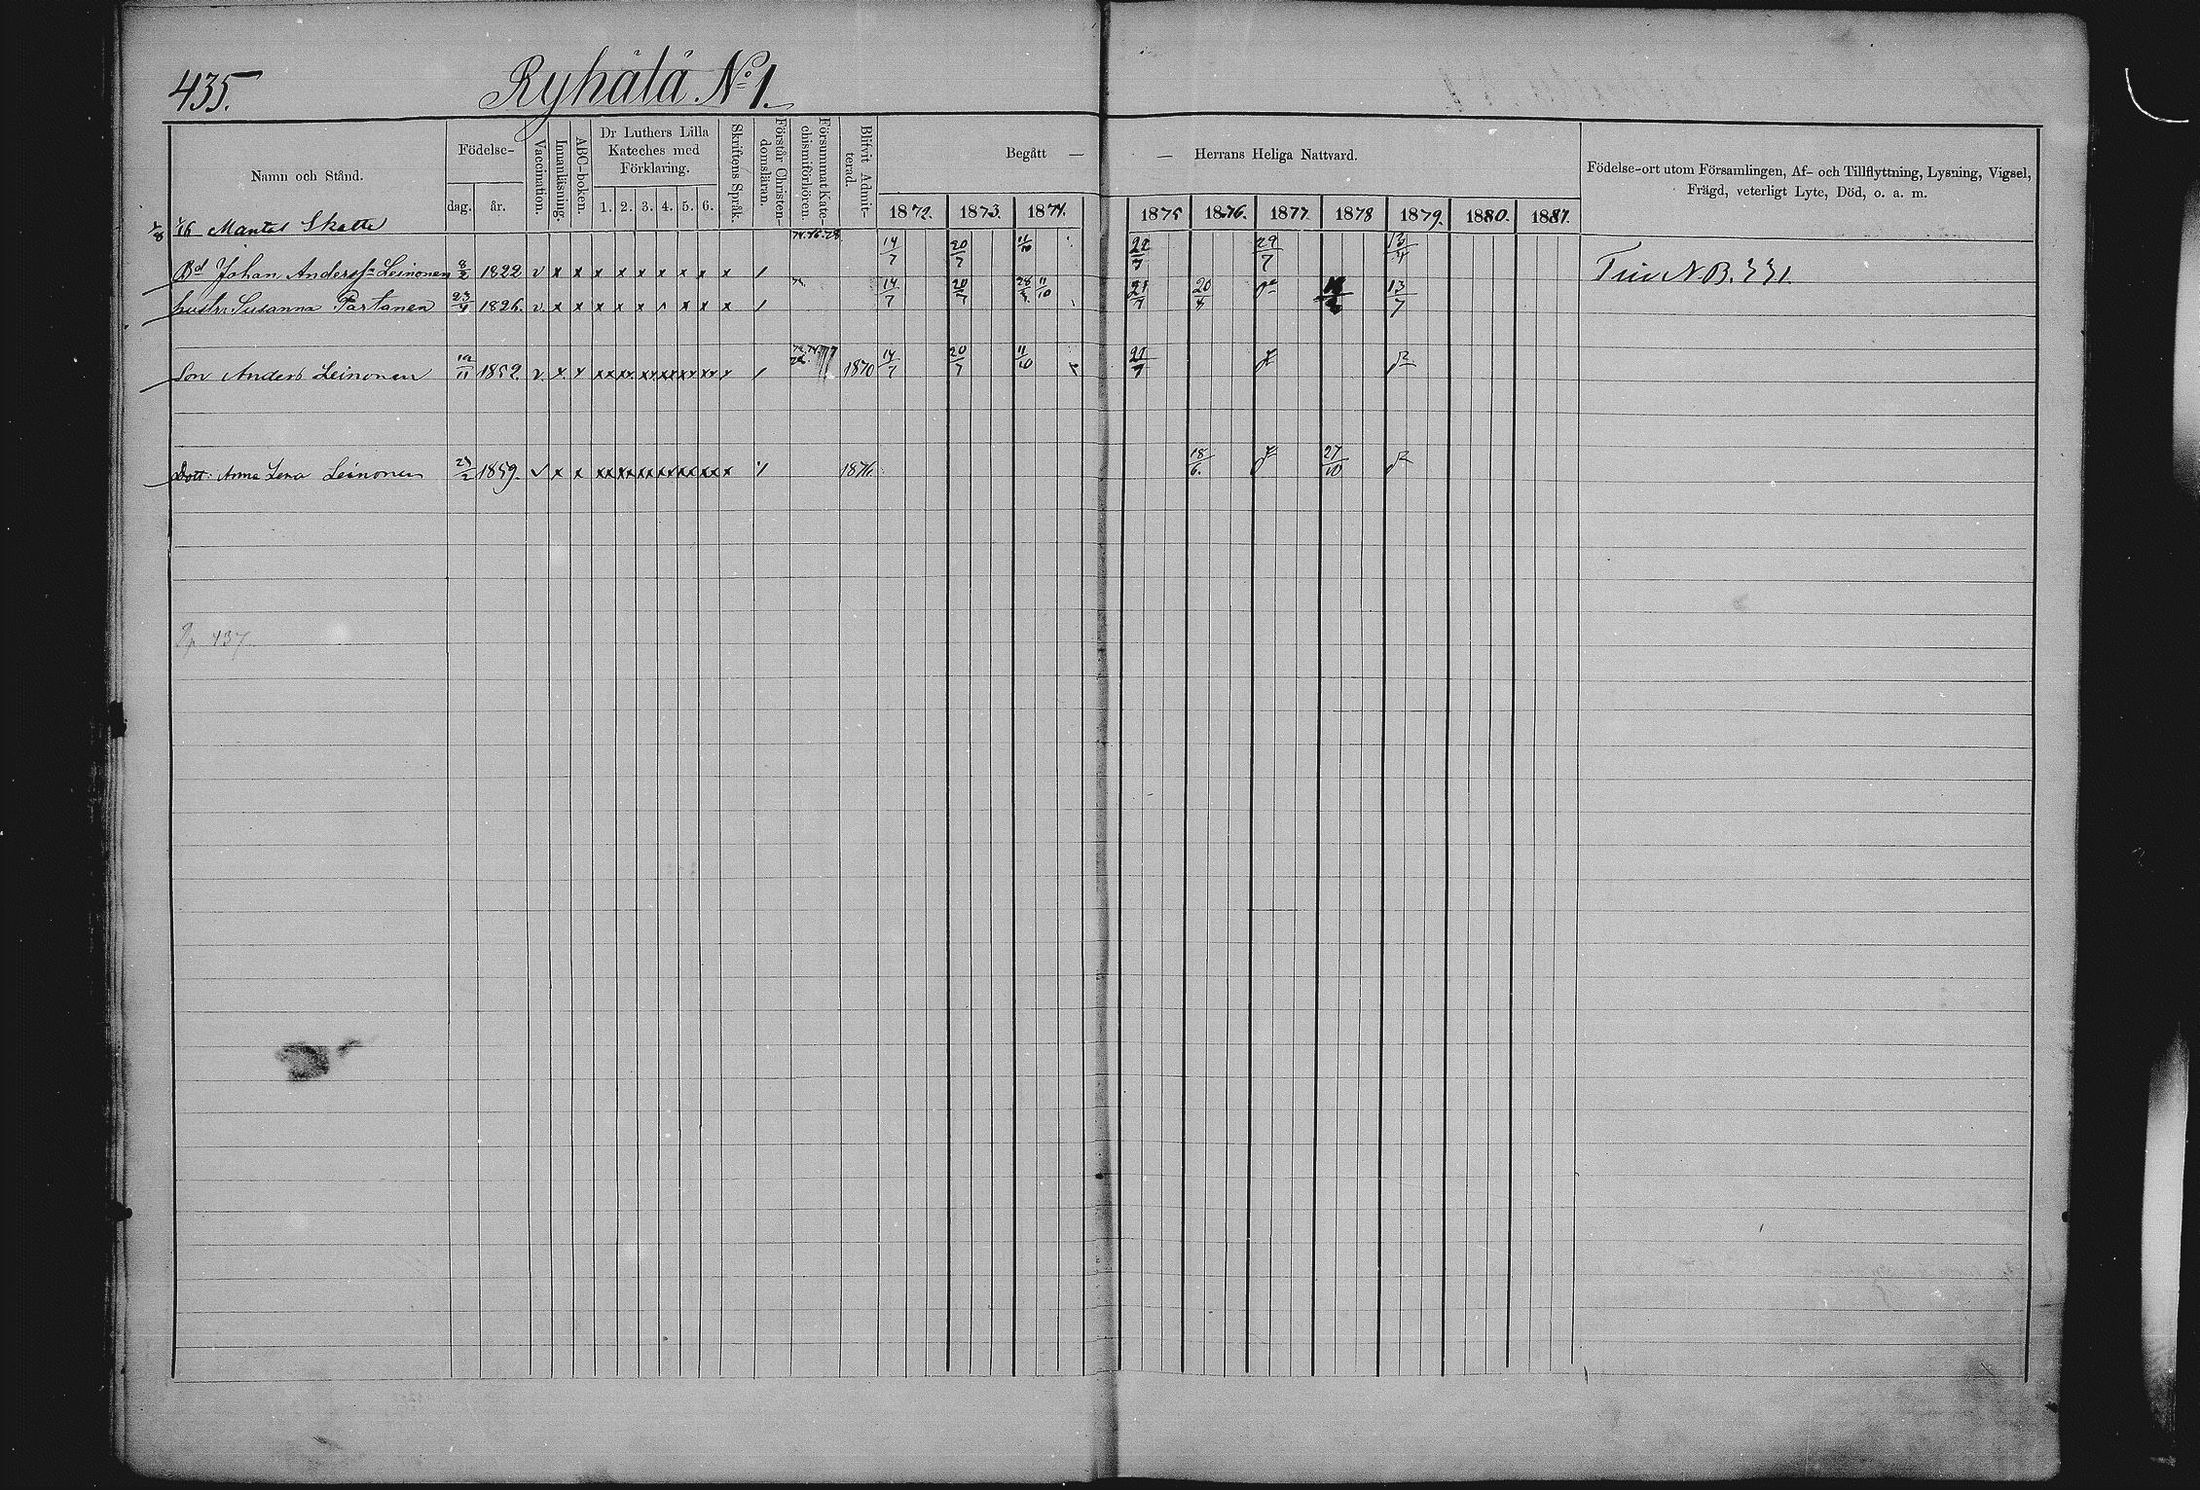 435.
Ryhälä No 1.
Namn och Stånd.
Födelse-
dag.
år.
Vaccination.
Innanläsning.
ABC-boken.
Dr Luthers Lilla
Kateches med
Förklaring.
1. 2. 3. 4. 5. 6.
Skriftens Språk.
Förstår Christen-
domsläran.
Försummat Kate-
chismiförhören.
Blifvit Admit-
terad.
Begått — — Herrans Heliga Nattvard.
1872. 1873. 1874. 1875 1876. 1877. 1878 1879. 1880. 1881.
Födelse-ort utom Församlingen, Af- och Tillflyttning, Lysning, Vigsel,
Frägd, veterligt Lyte, Död, o. a. m.
Mantal Skatte
Bd Johan Anderss:n Leinonen 8/2 1822 v x x x x x x x x x / 14/7 20/7 11/10 29/7 13/7
hustr: Susanna Partanen 23/4 1826. v. x x x x x x x x x / 14/7 20/7 11/10 13/7
Son Anders Leinonen 1852. v. x x xx xx xx xx xx xx x / 1870 14/7 20/7 11/10
Dott: Anna Lena Leinonen 1859. v x x xx xx xx xx xx xx x 1876. 18/6. 27/10
N.B. 331.
p. 437.